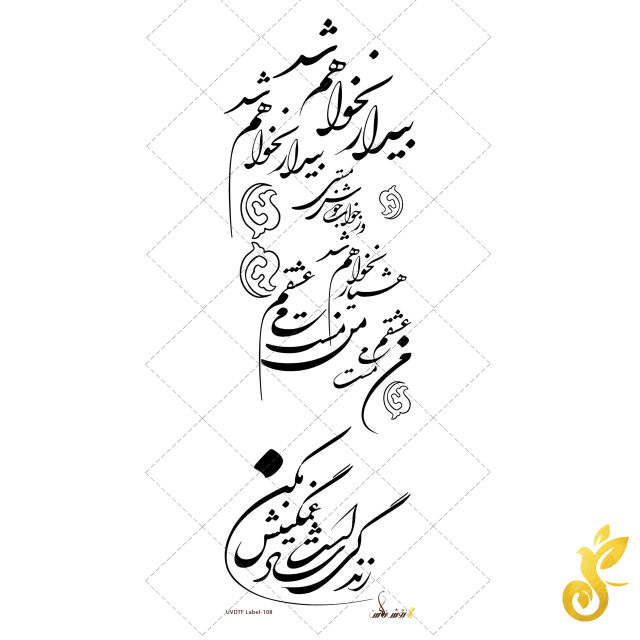 بیدار نخواهم شد
بیدار نخواهم شد
وز خواب خوش مستی
هشیار نخواهم شد
من مست می عشقم
من مست می عشقم
زندگی شاد است غمگینش مکن
UVDTF Label-108